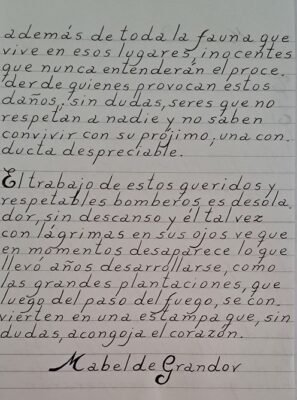 además de toda la fauna que
vive en esos lugares, inocentes
que nunca entenderán el proce.
der de quienes provocan estos
daños, sin dudas, seres que no
respetan a nadie y no saben
convivir con su prójimo, una con.
ducta despreciable.
El trabajo de estos queridos y
respetables bomberos es desola.
dor, sin descanso y él tal vez
con lágrimas en sus ojos ve que
en momentos desaparece lo que
llevó años desarrollarse, como
las grandes plantaciones, que
luego del paso del fuego, se con.
vierten en una estampa que, sin
dudas, acongoja el corazón.
Mabel de Grandov